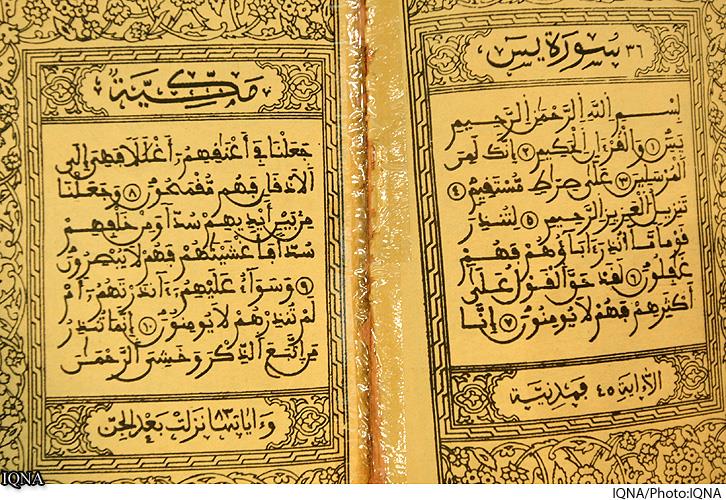 ٣٦ سورة يس
بسم الله الرحمن الرحيم
يس ١ والقرءان الحكيم ٢ إنك لمن
المرسلين ٣ على صراط مستقيم ٤
تنزيل العزيز الرحيم ٥ لتنذر
قوما ما أنذر ءاباؤهم فهم
غفلون ٦ لقد حق القول على
أكثرهم فهم لا يومنون ٧ إنا
الا اية ٤٥ فمدنية
مكية
جعلنا في أعنقهم أغللا فهي إلى
الاذقان فهم مقمحون ٨ وجعلنا
من بين أيديهم سدا ومن خلفهم
سدا فأغشينهم فهم لا يبصرون
٩ وسواء عليهم ءآنذرتهم أم
لم تنذرهم لا يومنون ١٠ إنما تنذر
من اتبع الذكر وخشي الرحمن
وءاياتها ٨٣ نزلت بعد الجن
IQNA
IQNA/Photo:IQNA